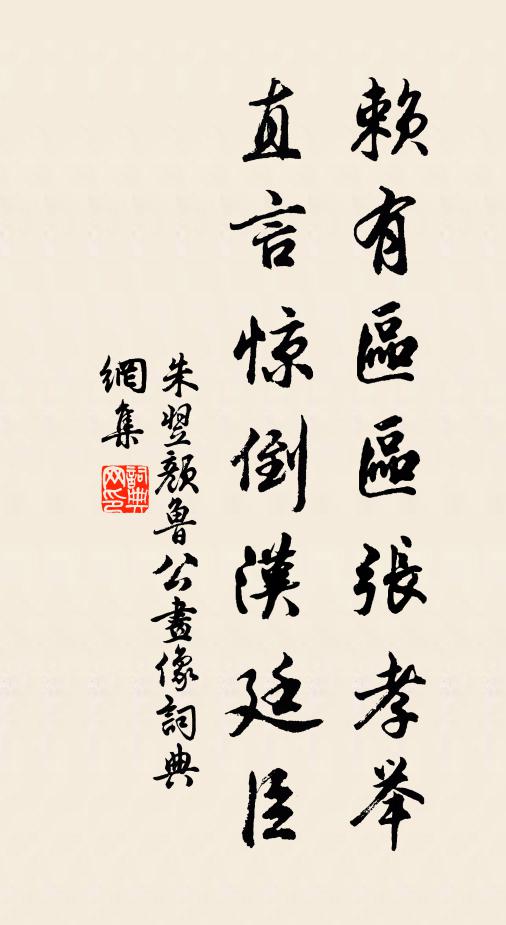 賴有區區張孝举
直言惊倒漢廷臣
朱翌顏魯公畫像詞典
網集
詞典
网印